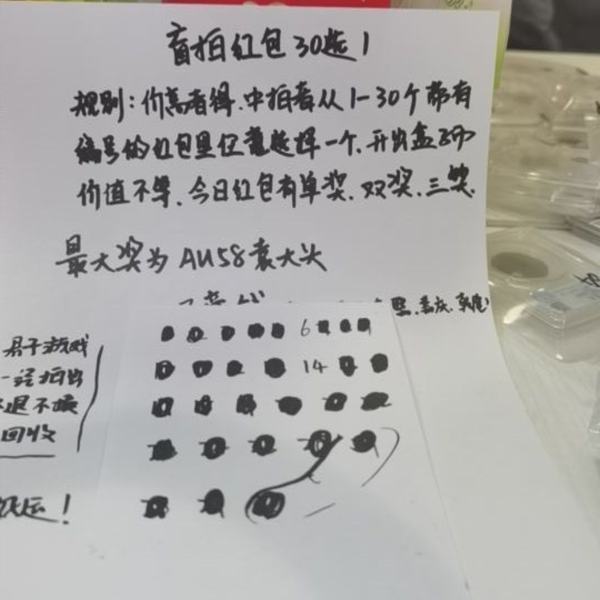 盲拍红包30选1
规则：价高者得.中拍者从1-30个带有
编号的红包里任意选择一个.开出盒子币
价值不等、今日红包有单奖.双奖.三奖.
最大奖为AU58袁大头
易于游戏
一经拍出
不退不换
回收
6
14
好运！